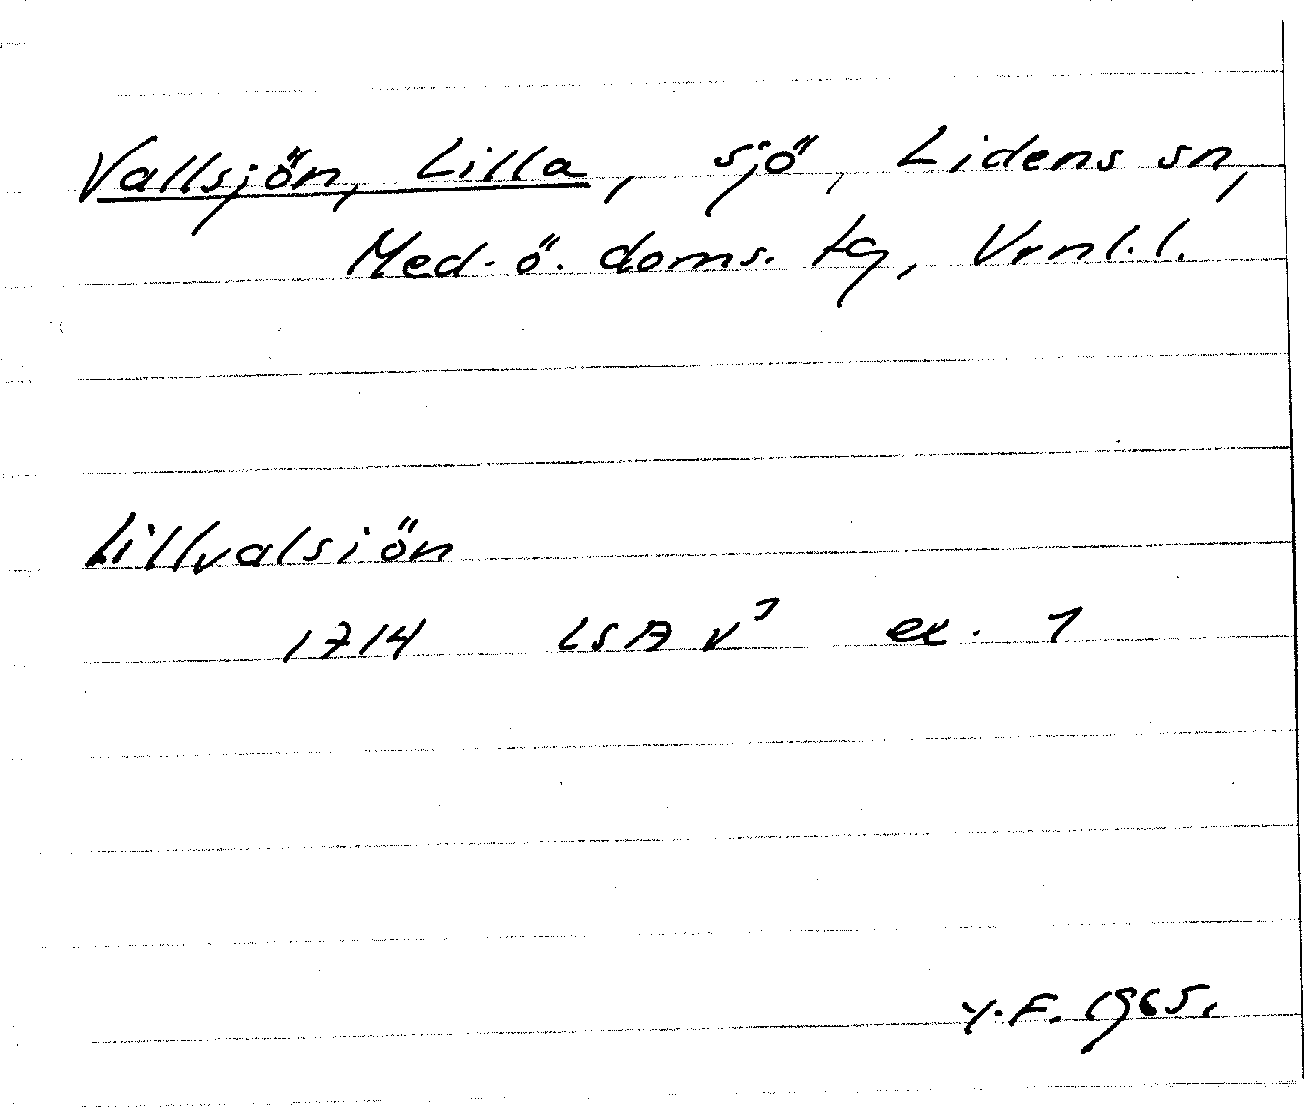 Vallsjön, Lilla, sjö, Lidens sn,
Med. ö. doms. tg, Vrnl. l.
Lillvalsiön
1714 LSA V³ ex. 1
Y.F. 1965.